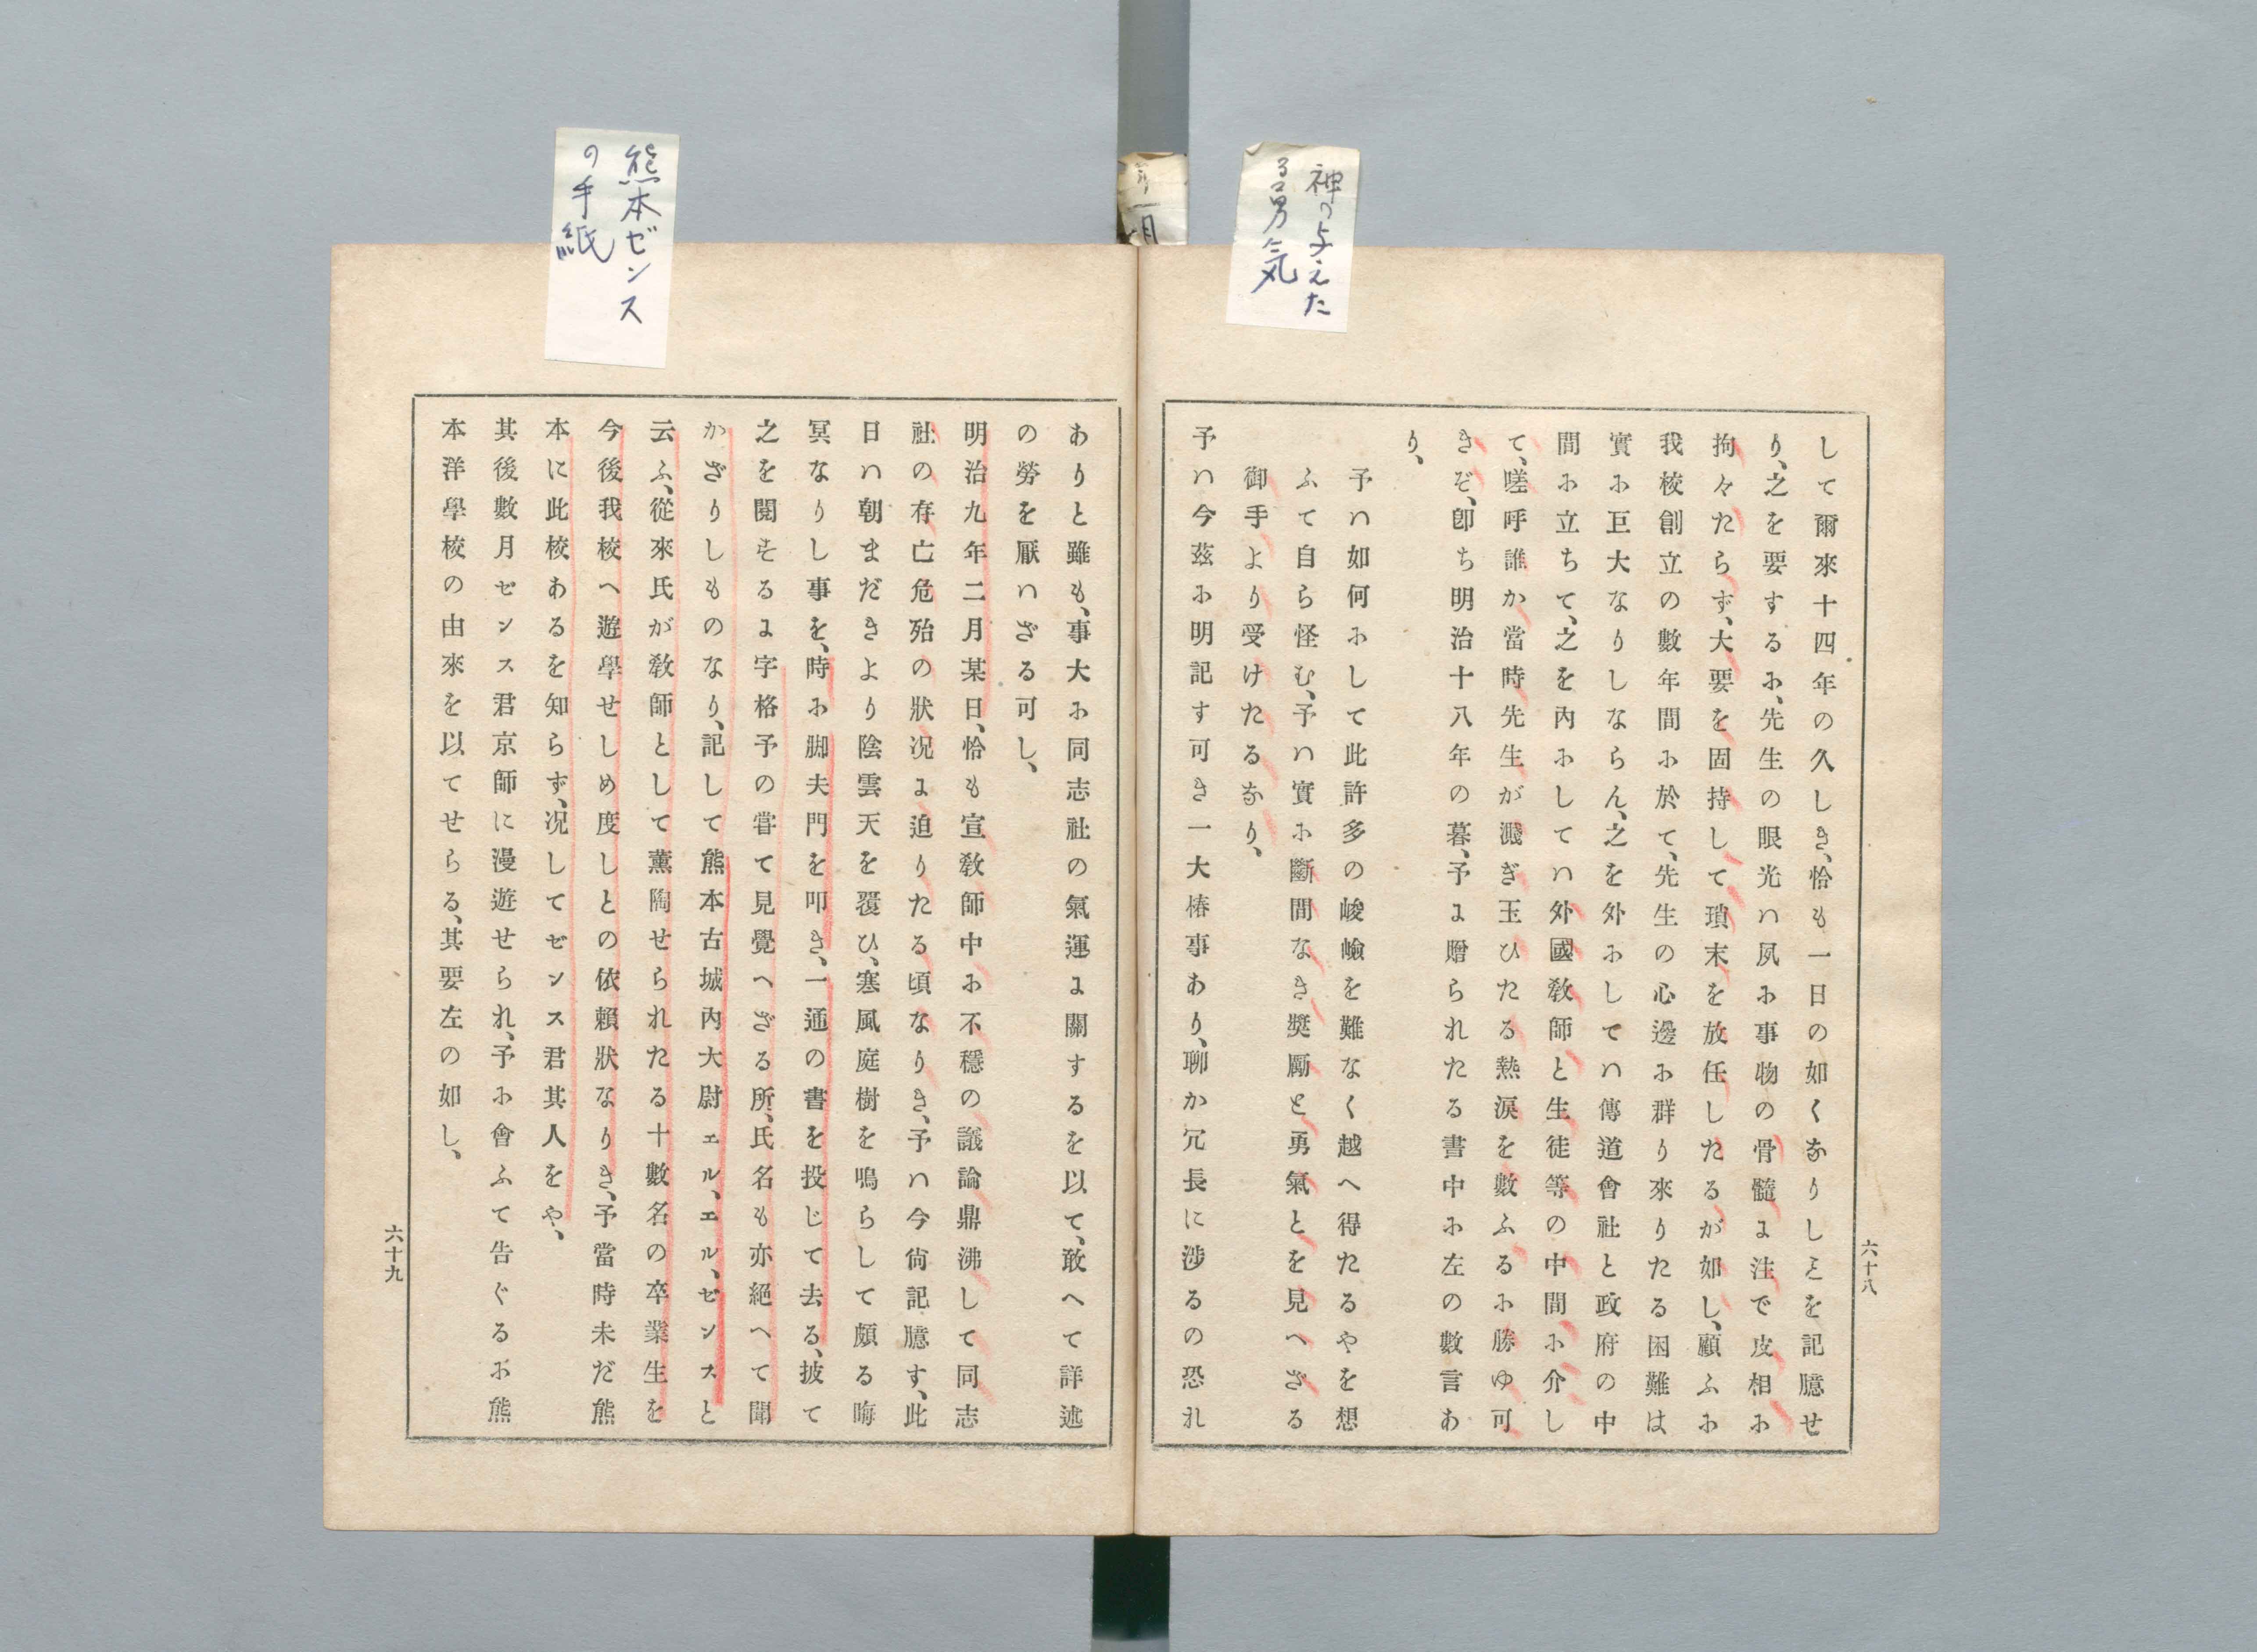 神の与えた
る勇気
して爾來十四年の久しき、恰も一日の如くなりしヿを記臆せ
り、之を要するに、先生の眼光ハ夙に事物の骨髓に注で皮相に
拘々たらず、大要を固持して、瑣末を放任したるが如し、顧ふに
我校創立の數年間に於て、先生の心邊に群り來りたる困難は
實に巨大なりしならん、之を外にしてハ傳道會社と政府の中
間に立ちて、之を內にしてハ外國敎師と生徒等の中間に介し
て、嗟呼誰か當時先生が濺ぎ玉ひたる熱淚を數ふるに勝ゆ可
きぞ、卽ち明治十八年の暮、予に贈られたる書中に左の數言あ
り、
予ハ如何にして此許多の峻嶮を難なく越へ得たるやを想
ふて自ら怪む、予ハ實に斷間なき奬勵と勇氣とを見へざる
御手より受けたるなり、
予ハ今茲に明記す可き一大椿事あり、聊か冗長に涉るの恐れ
六十八
熊本ゼンス
の手紙
ありと雖も、事大に同志社の氣運に關するを以て、敢へて詳述
の勞を厭ハざる可し、
明治九年二月某日、恰も宣敎師中に不穩の議論鼎沸して同志
社の存亡危殆の狀况に迫りたる頃なりき、予ハ今尙記臆す、此
日ハ朝まだきより陰雲天を覆ひ、寒風庭樹を鳴らして頗る晦
冥なりし事を、時に脚夫門を叩き、一通の書を投じて去る、披て
之を閱するに字格予の甞て見覺へざる所、氏名も亦絕へて聞
かざりしものなり、記して熊本古城內大尉エル、エル、ゼンスと
云ふ、從來氏が敎師として薰陶せられたる十數名の卒業生を
今後我校へ遊學せしめ度しとの依賴狀なりき、予當時未だ熊
本に此校あるを知らず、况してゼンス君其人をや、
其後數月ゼンス君京師に漫遊せられ、予に會ふて吿ぐるに熊
本洋學校の由來を以てせらる、其要左の如し、
六十九